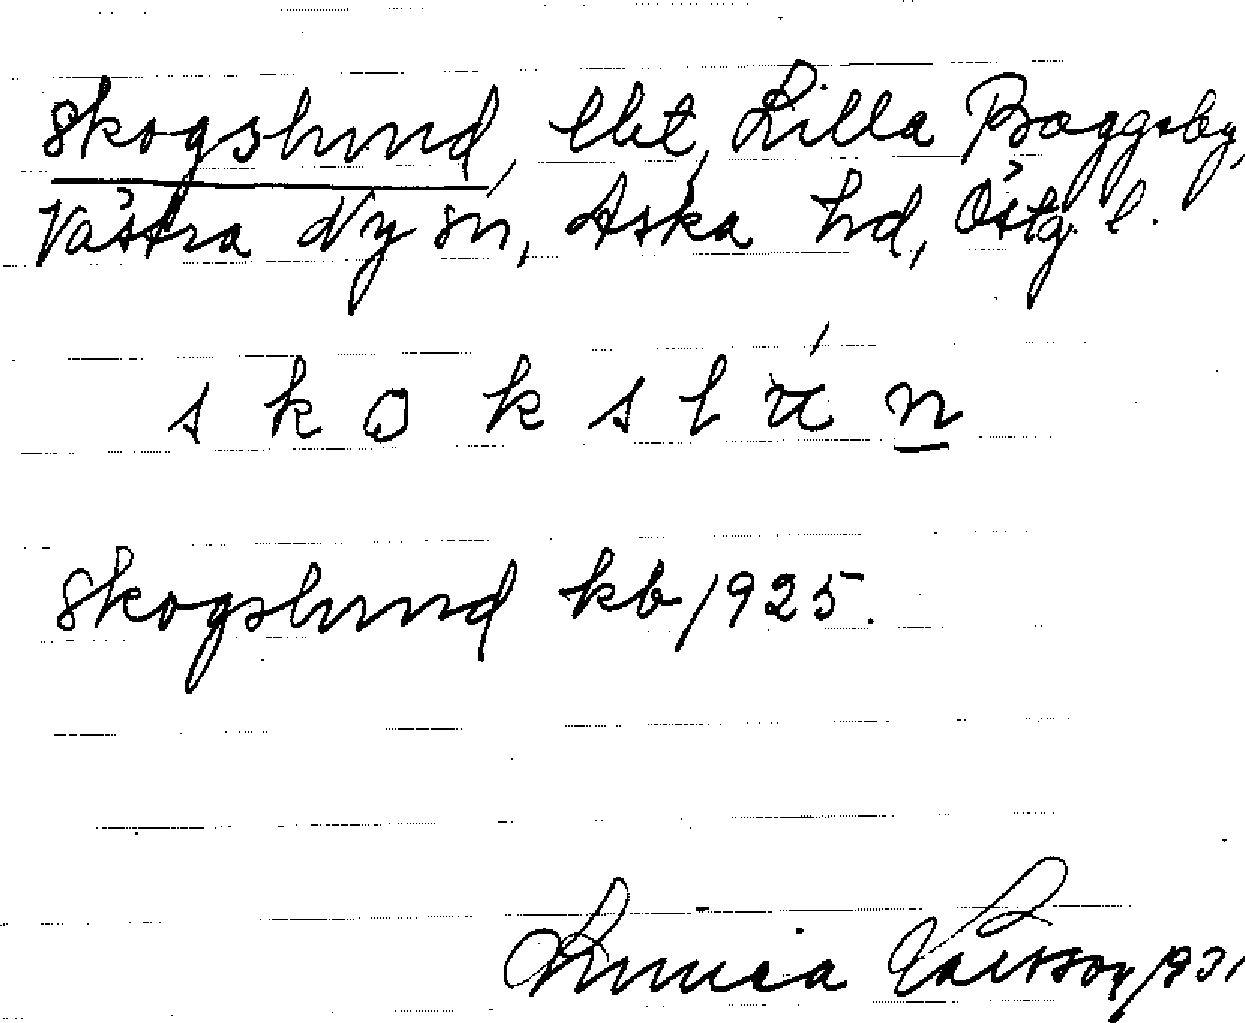 Skogslund, lht, Lilla Boggsby,
Västra Ny sn, Aska hd, Östg. l.
s k o k s l ú n
Skogslund kb/1925.
1931